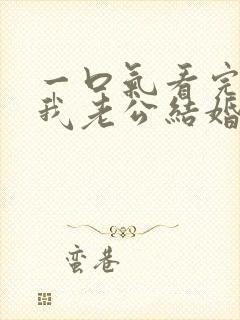 一口氣看完
我老公結婚
蛮巷